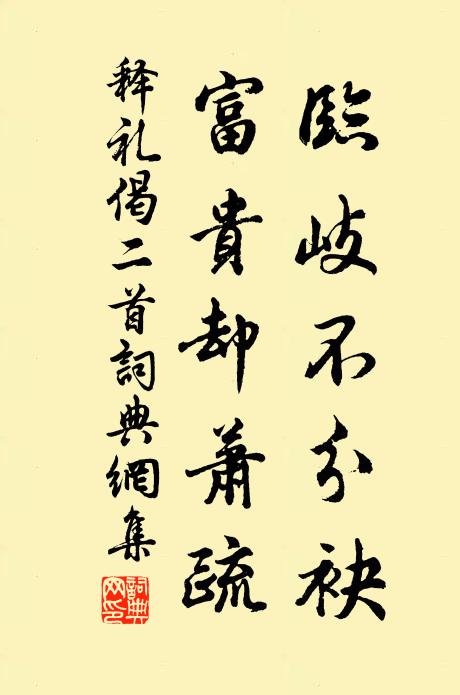 臨岐不分袂
富貴却蕭疏
释礼偈二首詞典網集
詞典网印